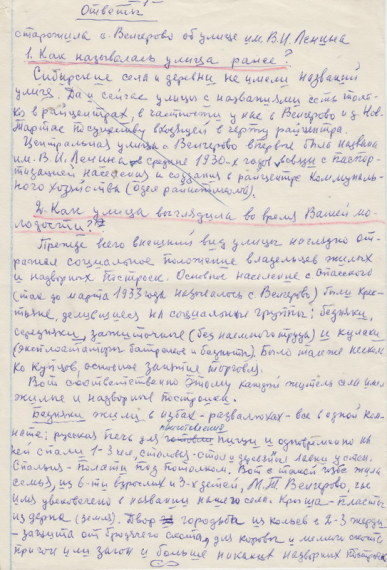 Ответы
старожила с. Венгерово об улице им. В.И. Ленина
1. Как называлась улица ранее?
Сибирские села и деревни не имели названий
улиц. Да и сейчас улицы с названиями есть толь-
ко в райцентрах, в частности у нас в Венгерово и д. Нов.
Мартас по существу входящей в черту райцентра.
Центральная улица с Венгерово впервые была названа
им. В.И. Ленина в средине 1930-х годов в связи с паспор-
тизацией населения и создания в райцентре коммуналь-
ного хозяйства
2. Как улица выглядила во время Вашей мо-
лодости?
Прежде всего внешний вид улицы наглядно от-
ражал социальное положение владельцев жилых
и надворных построек. Основное население с Спасского
(так до марта 1933 года называлось с. Венгерово) были крес-
тьяне, делившиеся на социальные группы: бедняки,
середняки, зажиточные (без наемного труда) и кулаки
(эксплоататоры батраков и бедноты). Было также несколь-
ко купцов, основное занятие торговля.
Вот соответственно этому каждый житель села имел
жилые и надворные постройки.
Бедняки жили в избах-развалюхах - все в одной ком-
нате: русская печь для приготовления пищи и одновременно на
ней спали 1-3 чел, столовая - стол и деревянные лавки у стен.
Спальня - полати под потолком. Вот в такой избе жила
семья, из 6-ти взрослых и 3-х детей, М.Т. Венгерово, чье
имя увековечено в названии нашего села. Крыша - пласты
из дерна (земли). Двор городьба из кольев с 2-3 жерди
- защита от бродячего скота, для коровы и мелкого скота
пригон или загон и больше никаких надворных построек